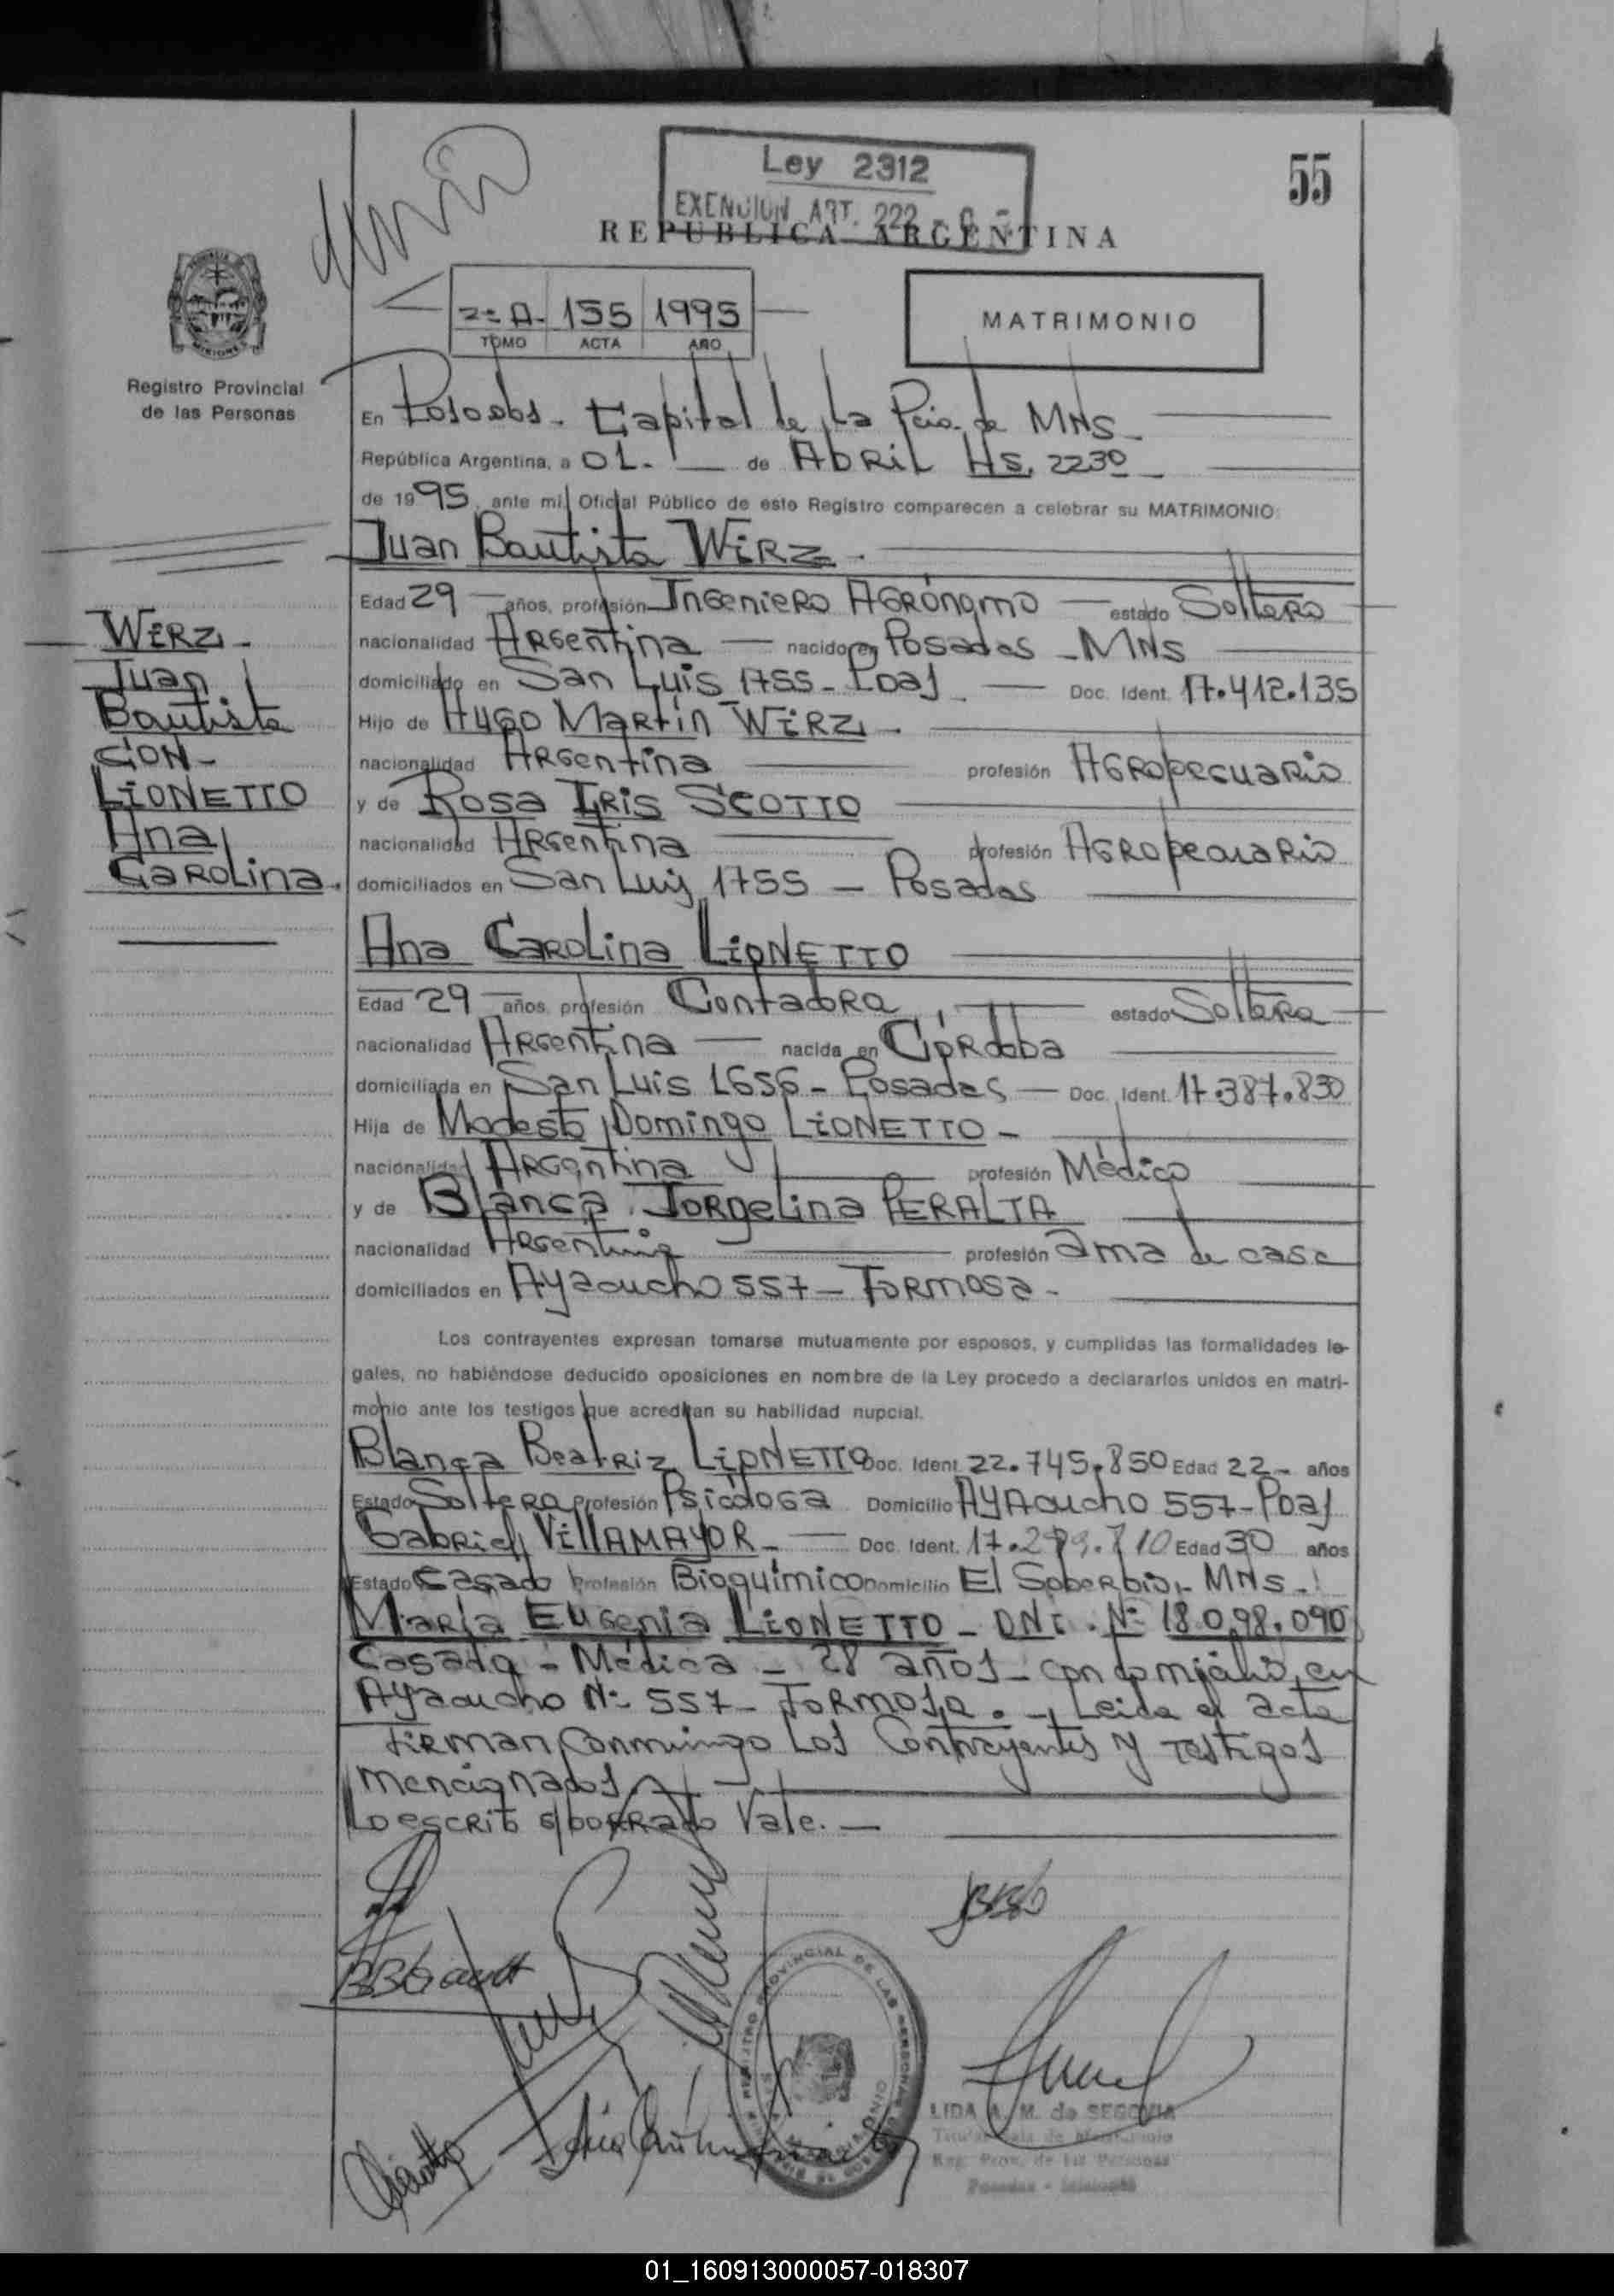 Ley 2312
EXENCION ART. 222 -
55
REPUBLICA ARGENTINA
2º A- 155 1995
TOMO ACTA AÑO
MATRIMONIO
Registro Provincial
de las Personas
WiRZ -
Juan
Bautista
CON -
LiONETTO
Ana
CAROLina.
En Posadas - Capital de La Pcia. de MNS -
República Argentina, a 01. - de AbRiL Hs. 2230 -
de 1995, ante mi, Oficial Público de este Registro comparecen a celebrar su MATRIMONIO:
Juan Bautista WiRZ -
Edad 29 - años, profesión InGenieRo AGRónomo - estado SolteRo
nacionalidad ARGentina - nacido en Posadas - MNS
domiciliado en San Luis 1755 - Pdas - Doc. Ident. 17.412.135
Hijo de HUGO MaRtín WiRZ -
nacionalidad ARGentina profesión AGROpecuaRio
y de Rosa IRis SCOTTO
nacionalidad ARGentina profesión AGROpecuaRio
domiciliados en San Luis 1755 - Posadas
Ana CaROLina LiONETTO
Edad 29 - años, profesión ContadoRa estado SolteRa
nacionalidad ARGentina - nacida en CóRdoba
domiciliada en San Luis 1656 - Posadas - Doc. Ident. 17.387.830
Hija de Modesto Domingo LiONETTO -
nacionalidad ARGentina profesión Médico
y de Blanca JoRgelina PERALTA
nacionalidad ARGentina profesión ama de casa
domiciliados en Ayacucho 557 - FoRmosa -
Los contrayentes expresan tomarse mutuamente por esposos, y cumplidas las formalidades le-
gales, no habiéndose deducido oposiciones en nombre de la Ley procedo a declararlos unidos en matri-
monio ante los testigos que acreditan su habilidad nupcial.
Blanca BeatRiz LiONETTO Doc. Ident. 22.745.850 Edad 22 - años
Estado SolteRa Profesión Psicóloga Domicilio AyAcucho 557 - Pdas
Gabriel VillAMAYOR - Doc. Ident. Edad 30 años
Estado Casado Profesión Bioquímico Domicilio El SobeRbio - MNS -
MaRía EuGenia LiONETTO - DNI. Nº 18.098.090
Casada - Médica - 28 años - con domicilio en
Ayacucho Nº 557 - FoRmosa. - Leida el acta
FiRman conmingo Los Contrayentes y Testigos
mencionados
Lo escRito s/boRRado Vale. -
REGISTRO PROVINCIAL DE LAS PERSONAS
LIDA A. M. de SEGOVIA
Titular Sala de Matrimonio
Reg. Prov. de las Personas
Posadas - Misiones
01_160913000057-018307